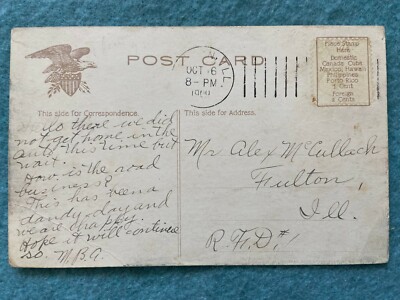 POST CARD
ILL.
OCT 6
8-PM
Place Stamp
Here
Domestic
Canada, Cuba
Mexico, Hawaii
Philippines
Porto Rico
1 Cent
Foreign
2 Cents
This side for Correspondence.
This side for Address.
So there we did
not get home in the
auto this time but
wait.
How is the road
business?
This has been a
dandy day and
we are happy.
Hope it will continue
so. M.B.A.
Mr Alex McCullach
Fulton,
Ill.
R.F.D. #1